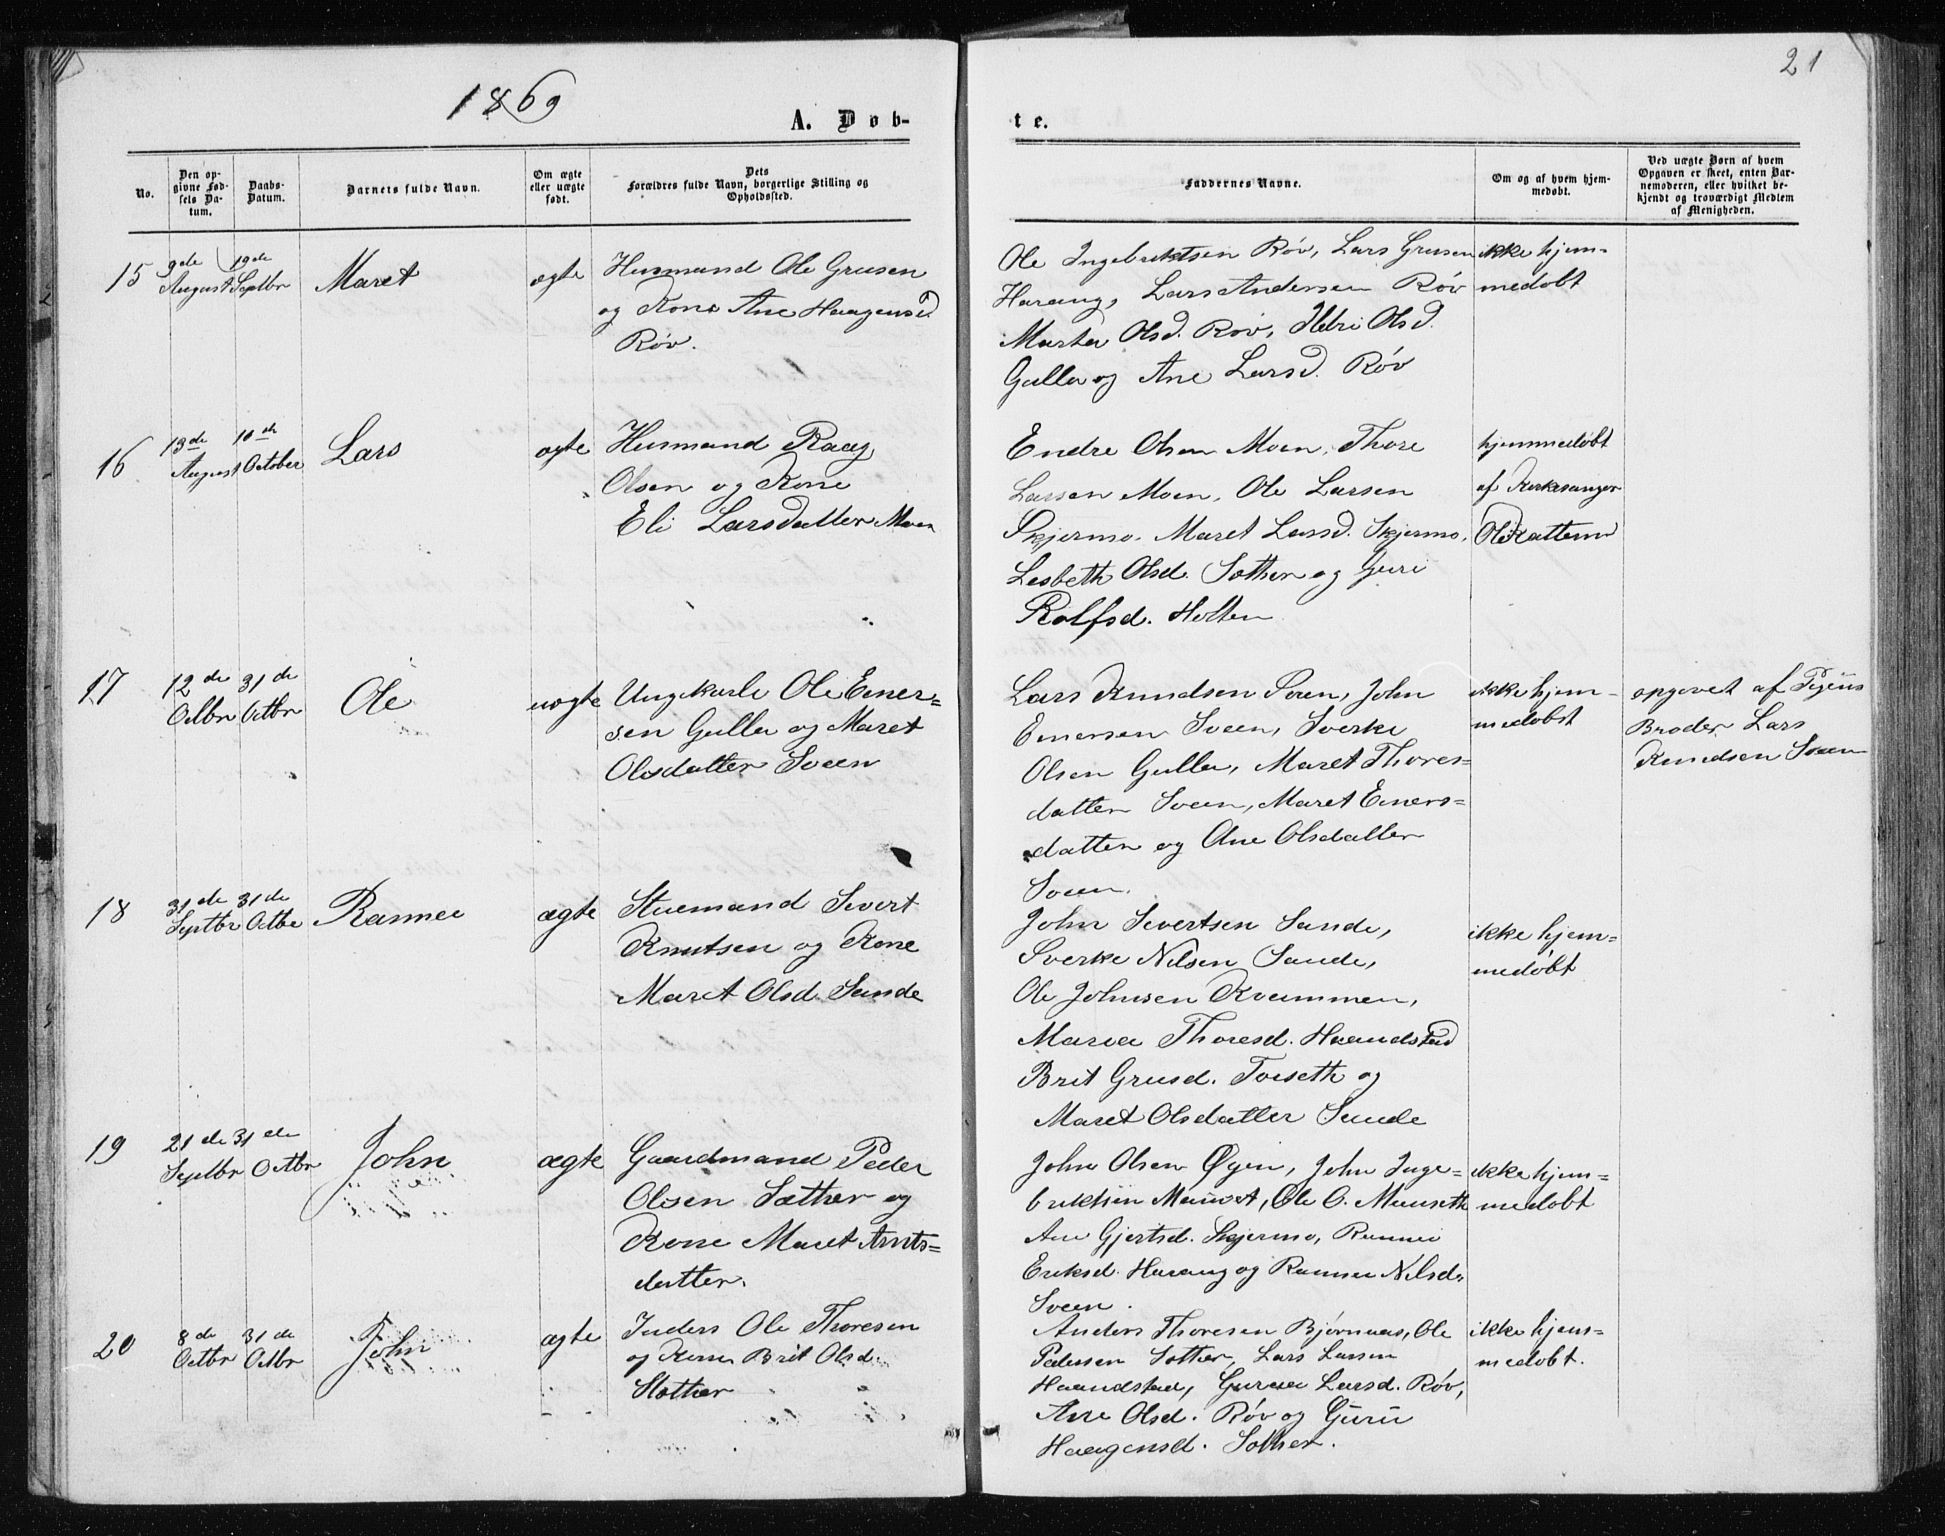 21
1869
A. Døb-
te.
No.
Den op-
givne Fød-
sels Da-
tum.
Daabs-
Datum.
Barnets fulde Navn.
Om ægte
eller uægte
født.
Dets
Forældres fulde Navn, borgerlige Stilling og
Opholdssted.
Faddernes Navne.
Om og af hvem hjem-
medøbt.
Ved uægte Børn af hvem
Opgaven er skeet, enten Bar-
nemoderen, eller hvilket be-
kjendt og troværdigt Medlem
af Menigheden.
15
9de
August
19de
Septbr
Maret
ægte
Husmand Ole Grusen
og Kone Ane Haagensd
Røv.
Ole Ingebriktsen Røv, Lars Grusen
Harang, Lars Andersen Røv
Marta Olsd. Røv, Ildri Olsd.
Gulla og Ane Larsd. Røv
ikke hjem-
medøbt
16
13de
August
10de
October
Lars
ægte
Husmand Raag
Olsen og Kone
Eli Larsdatter Moen
Endre Olsen Moen, Thore
Larsen Moen, Ole Larsen
Skjermo. Maret Larsd. Skjermo,
Lesbeth Olsd. Sæther og Guri
Rolfsd. Holten
hjemmedøbt
af Kirkesanger
Ole Rattem
17
12de
Octbr
31de
Octbr
Ole
uægte
Ungkarl Ole Einer=
sen Gulla og Maret
Olsdatter Sveen
Lars Knudsen Sveen, John
Einersen Sveen, Sverke
Olsen Gulla, Maret Thores=
datter Sveen, Maret Einers=
datter og Ane Olsdatter
Sveen.
ikke hjem-
medøbt
opgivet af Pigens
Broder Lars
Knudsen Sveen
18
31de
Septbr
31de
Octbr
Rannei
ægte
Stuemand Sivert
Knutsen og Kone
Maret Olsd. Sande
John Sivertsen Sande,
Sverke Nilsen Sande,
Ole Johnsen Kvammen,
Maria Thoresd. Haandstad
Brit Grusd. Tviseth og
Maret Olsdatter Sande
ikke hjem=
medøbt
19
21de
Septbr
31de
Octbr
John
ægte
Gaardmand Peder
Olsen Sæther og
Kone Maret Arnts=
datter.
John Olsen Øyen, John Inge=
briktsen, Ole O.
Ane Gjertsd. Skjermo, Rannei
Eriksd. Harang og Rannei Nilsd.
Sveen.
ikke hjem=
medøbt
20
8de
Octbr
31de
Octbr
John
ægte
Inders Ole Thoresen
og Kone Brit Olsd.
Sæther
Anders Thoresen Bjørnaas, Ole
Pedersen Sæther, Lars Larsen
Haandstad, Gurea Larsd. Røv,
Ane Olsd. Røv og Guru
Haagensd. Sæther.
ikke hjem=
medøbt.